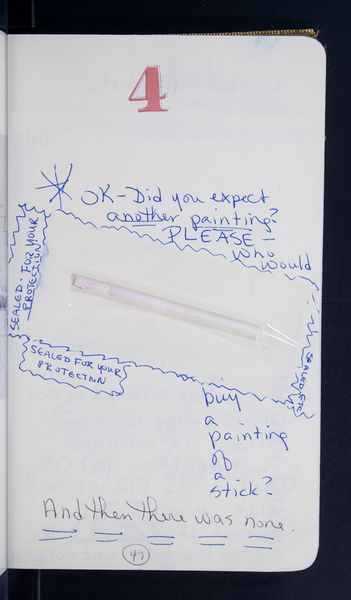 4
OK-Did you expect
another painting?
PLEASE-
who
would
SEALED. FOR YOUR
PROTECTION
SEALED FOR YOUR
PROTECTION
SEALED, ETC.
buy
a
painting
of
a
stick?
And then there was none.
47